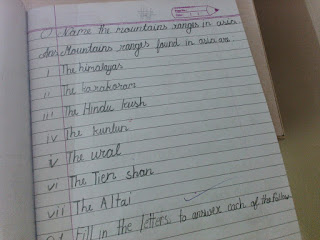 Q Name the mountains ranges in asia.
Ans Mountains ranges found in asia are
i The himalayas
ii The karakoram
iii The Hindu kush
iv The kunlun
v The ural
vi The Tien shan
vii The Altai
Fill in the letters to answer each of the follow